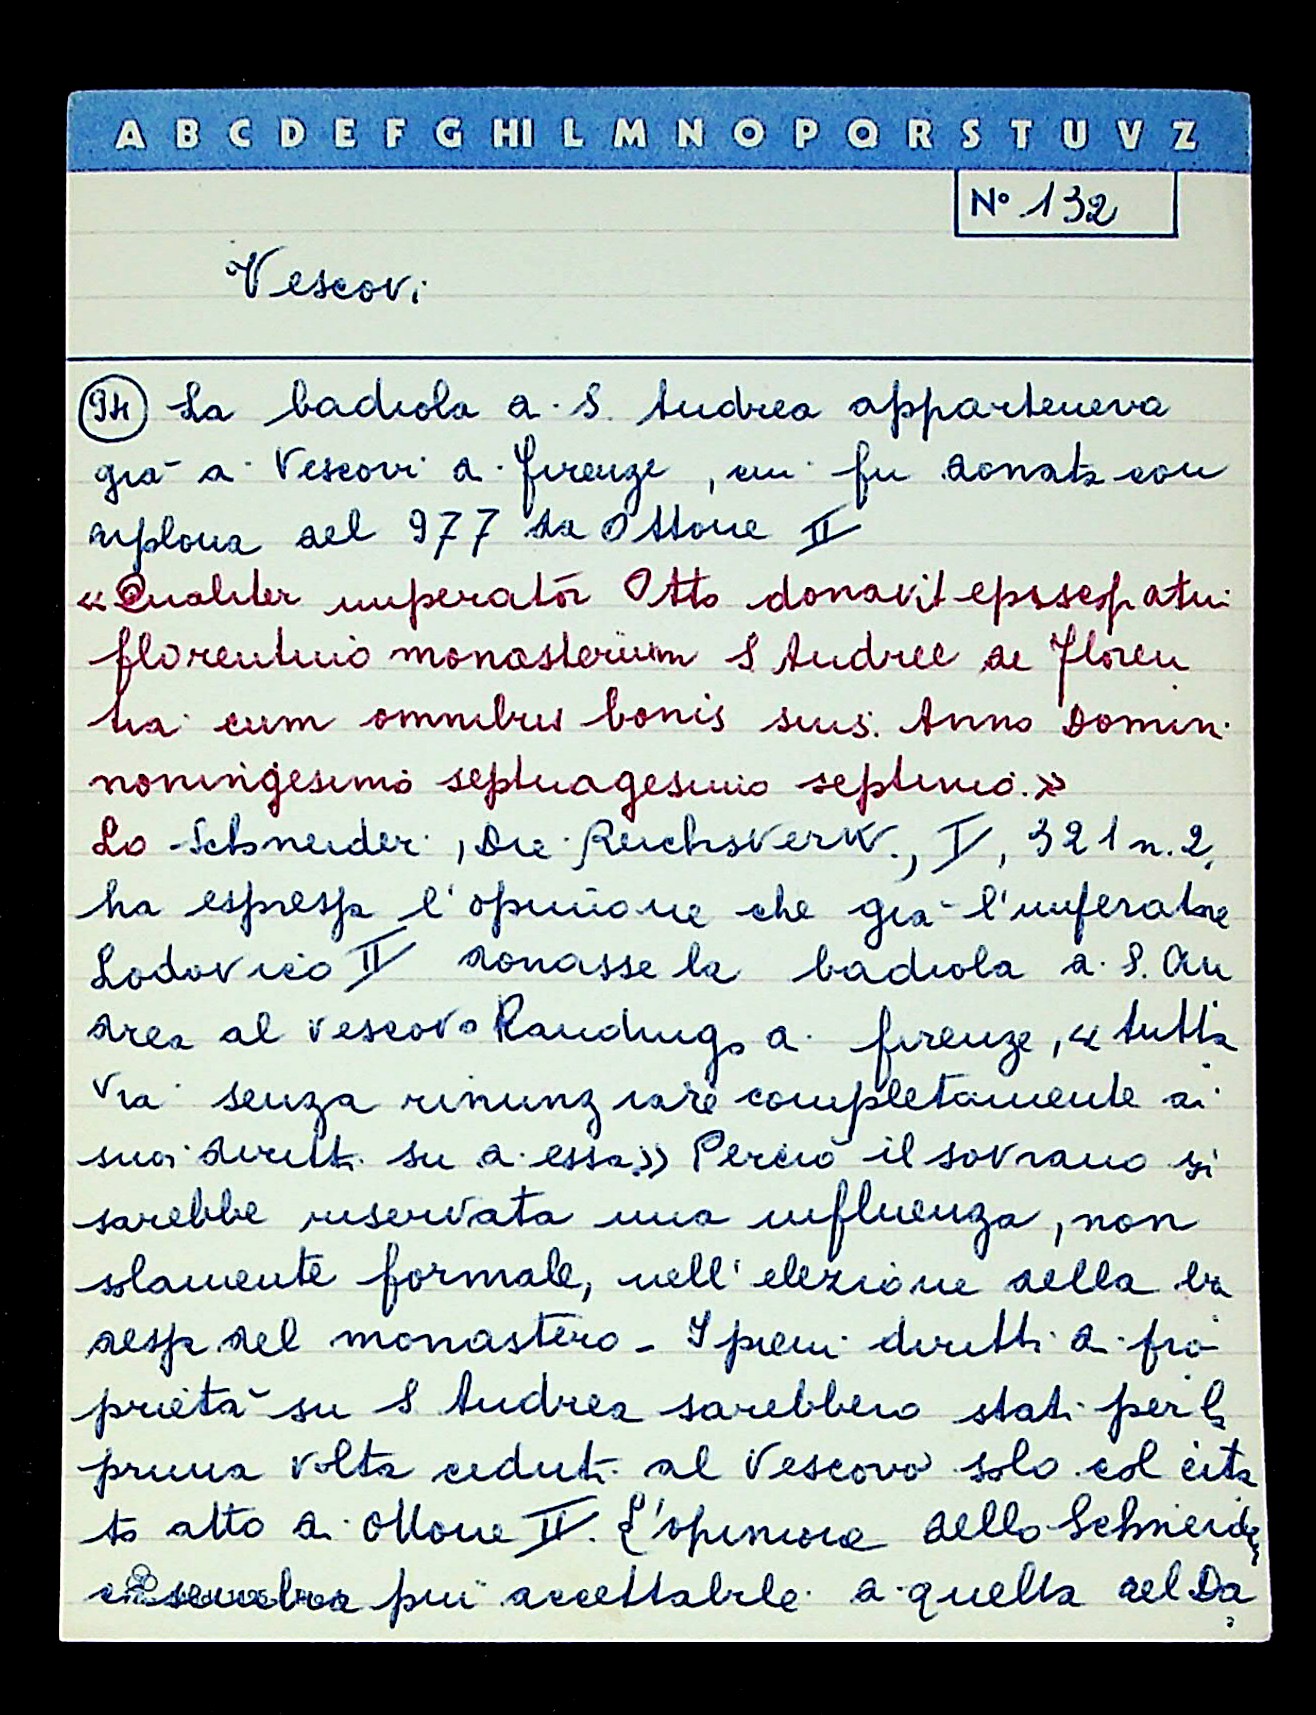 A B C D E F G HI L M N O P Q R S T U V Z
N° 132
Vescovi
94 La badiola di S. Andrea apparteneva
già ai Vescovi di Firenze, cui fu donata con
diploma del 977 da Ottone II
«Qualiter imperator Otto donavit episcopatui
florentino monasterium S Andree de Floren
tia cum omnibus bonis suis. Anno Domini
noningesimo septuagesimo septimo.»
Lo Schneider, Die Reichsverw., I, 321 n. 2,
ha espresso l'opinione che già l'imperatore
Lodovico II donasse la badiola di S. An
drea al vescovo Randingo di Firenze, «tutta
via senza rinunziare completamente ai
suoi diritti su di essa» Perciò il sovrano si
sarebbe riservata una influenza, non
solamente formale, nell'elezione della ba
dessa del monastero - I pieni diritti di pro
prietà su S Andrea sarebbero stati per la
prima volta ceduti al Vescovo solo col cita
to atto di Ottone II. L'opinione dello Schneider
ci sembra più accettabile di quella del Da